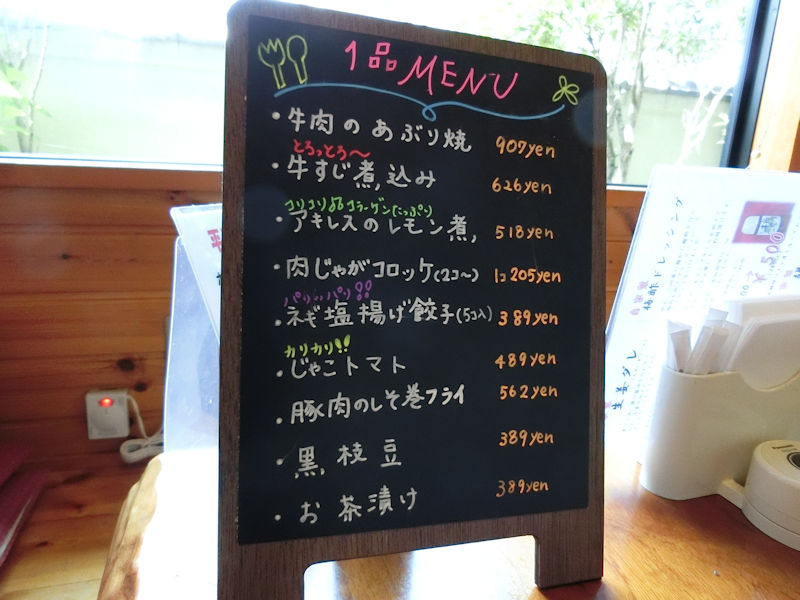 1品MENU
・牛肉のあぶり焼 907yen
とろっとろ〜
・牛すじ煮込み 626yen
コリコリ♪♪コラーゲンたっぷり
・アキレスのレモン煮 518yen
・肉じゃがコロッケ(2コ〜) 1コ205yen
パリッパリ!!
・ネギ塩揚げ餃子(5コ入) 389yen
カリカリ!!
・じゃこトマト 489yen
・豚肉のしそ巻フライ 562yen
・黒枝豆 389yen
・お茶漬け 389yen
梅酢ドレッシング